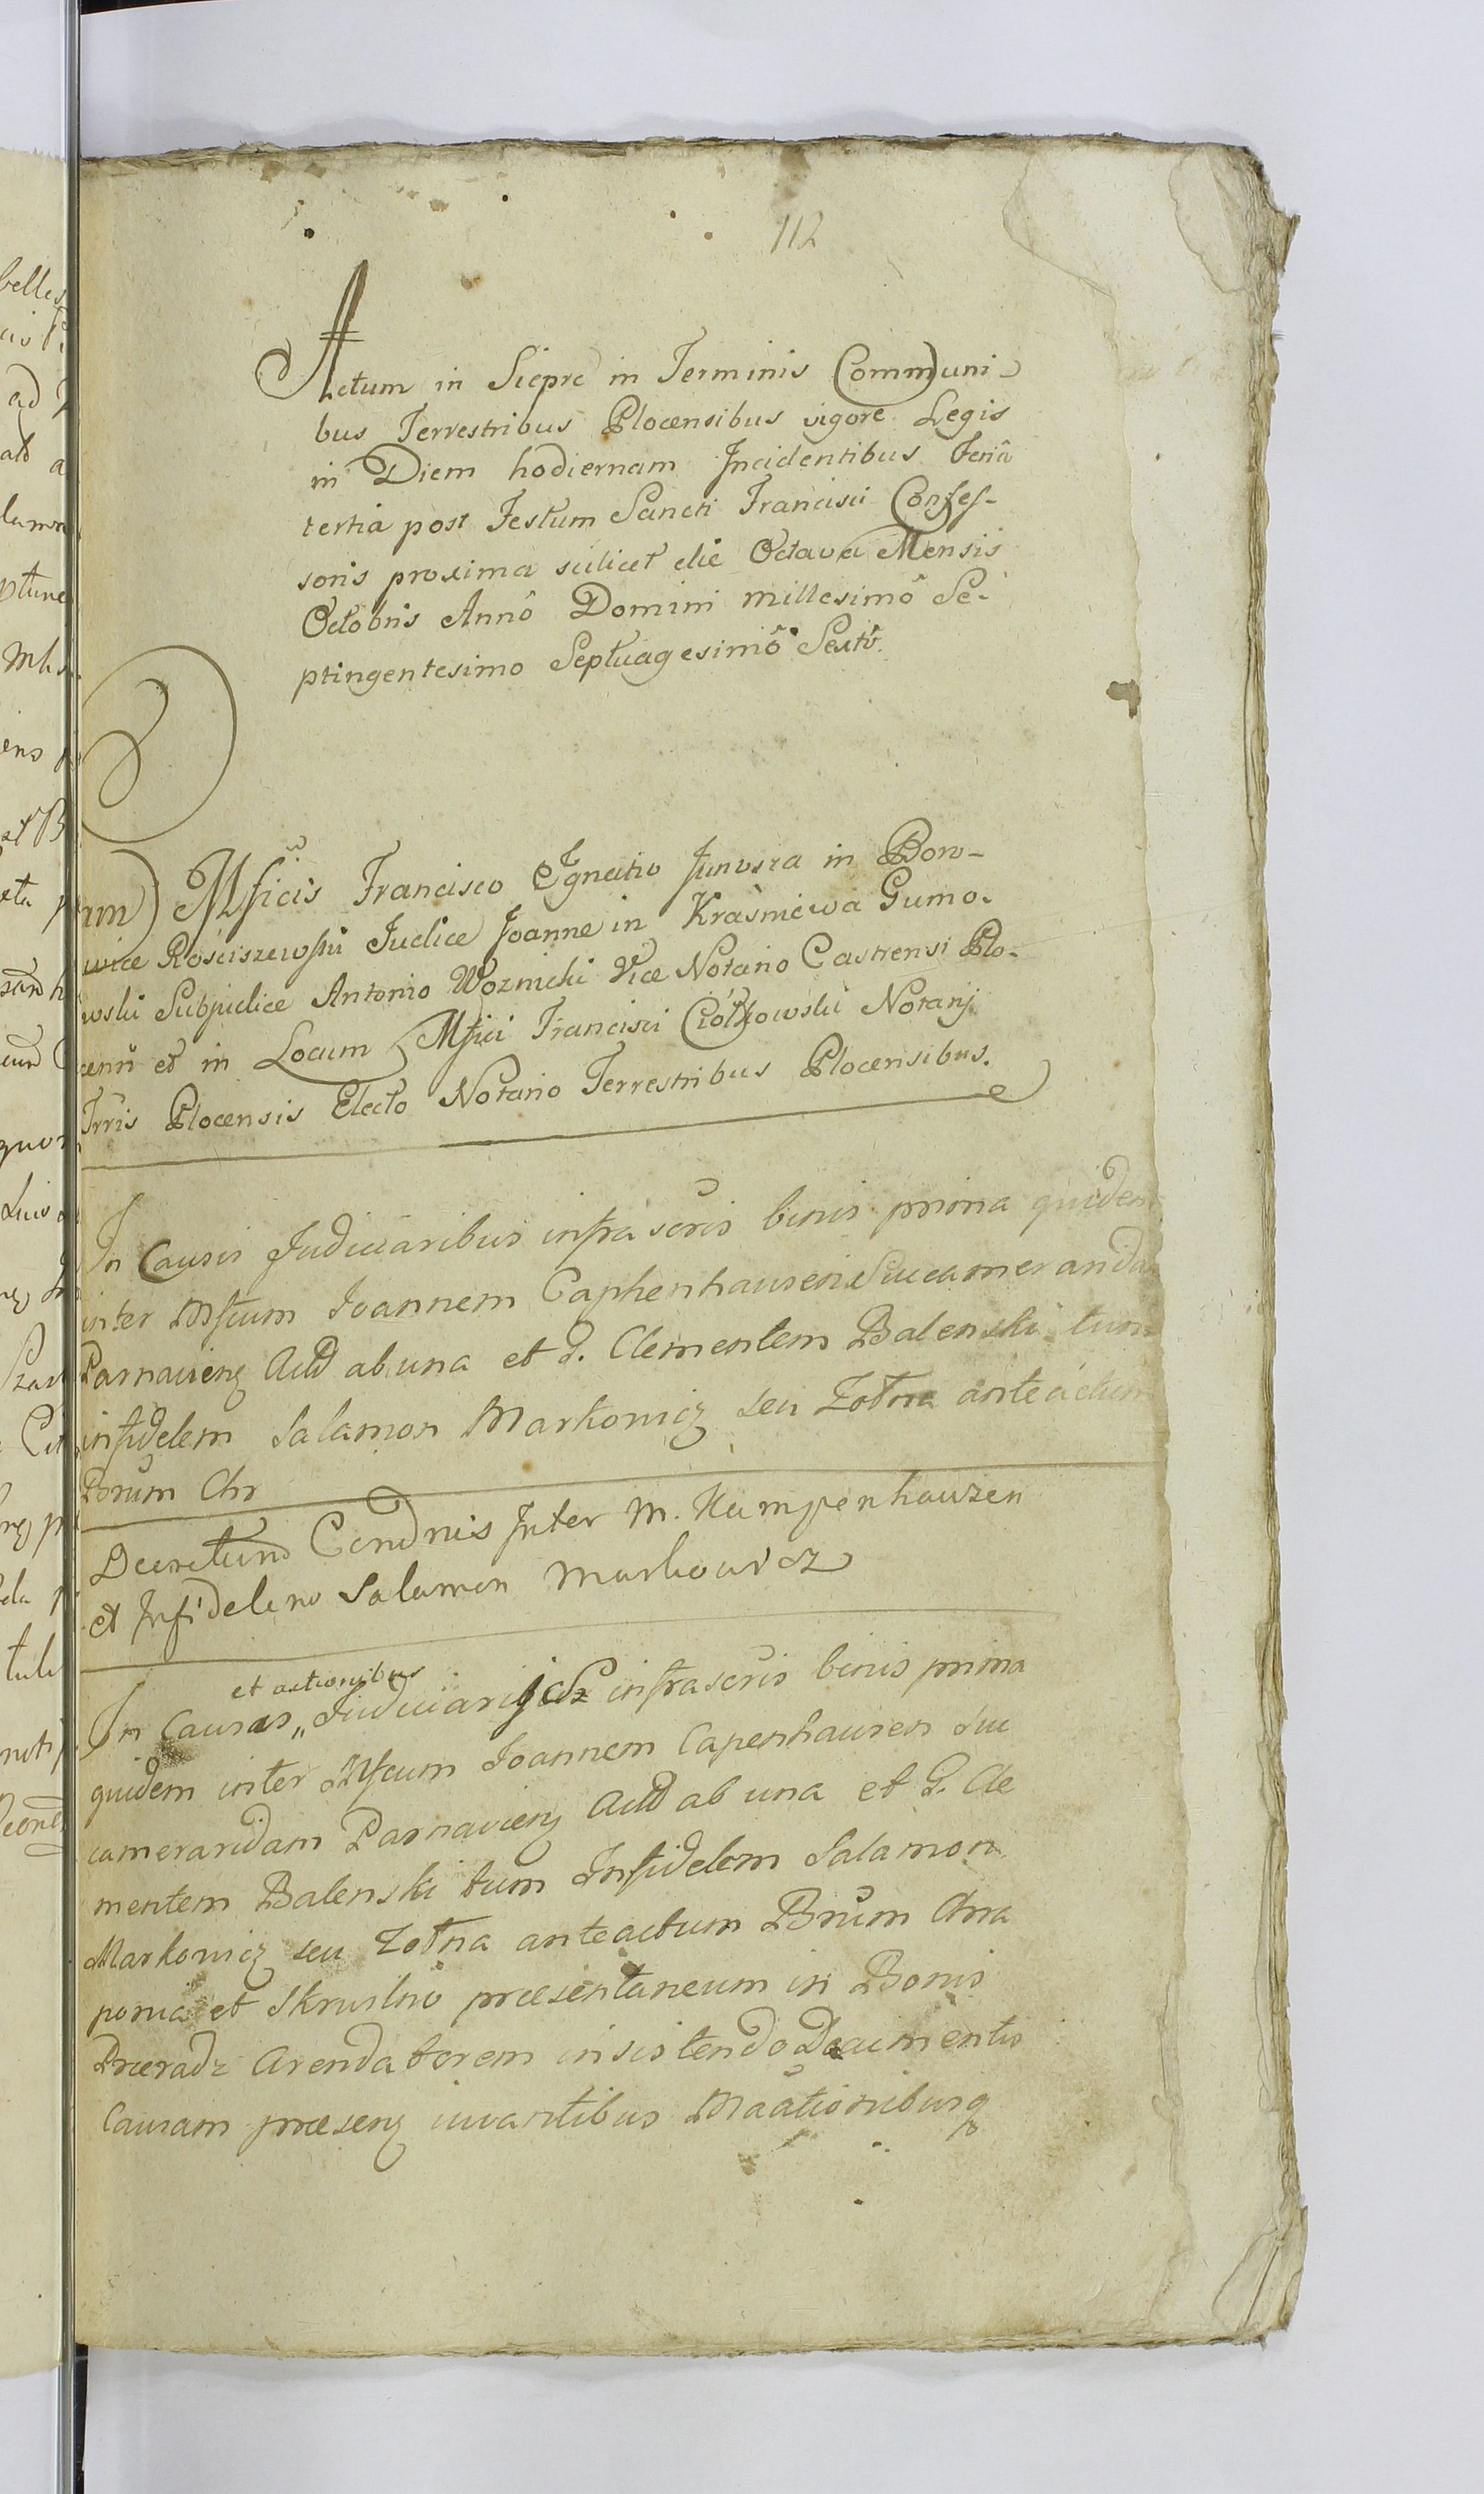 112
Actum in Siepre in Terminis Communi-
bus Terrestribus Plocensibus vigore Legis
in Diem hodiernam Incidentibus Feriâ
tertia post Festum Sancti Francisci Confes-
soris proxima scilicet die Octava Mensis
Octobris Annô Domini millesimô Se-
ptingentesimo Septuagesimô Sextô.
Mficis Francisco Ignatio Junosza in Boro-
wice Rościszewski Judice Joanne in Kraśniewa Gumo-
wski Subjudice Antonio Woznicki Vice Notario Castrensi Plo-
cenˢi et in Locum Mfici Francisci Ciółkowski Notarij
Trris Plocensis Electo Notario Terrestribus Plocensibus.
In Causis Judiciaribus infrascris binis prima quidem
inter Mfcum Joannem Caphenhausen Succamerandam
Parnavienz Actd ab una et G. Clementem Balenski tum
infidelem Salamon Markowicz seu Zotna anteactum
Borum Chr
Decretum Condnis Inter M. Kampenhauzen
et Infidelem Salamon Markowicz
et actionibus
In Causas „ Judiciarijs infrascris binis prima
quidem inter Mfcum Joannem Capenhausen Suc
camerandam Parnavienz Actd ab una et G. Cle
mentem Balenski tum Infidelem Salamon
Markowicz seu Zotna anteactum Brum Chra
ponia et Skrusno praesentaneum in Bonis
Praeradz Arendatorem insistendo Documentis
Causam praesenz iuvantibus Maationibusq